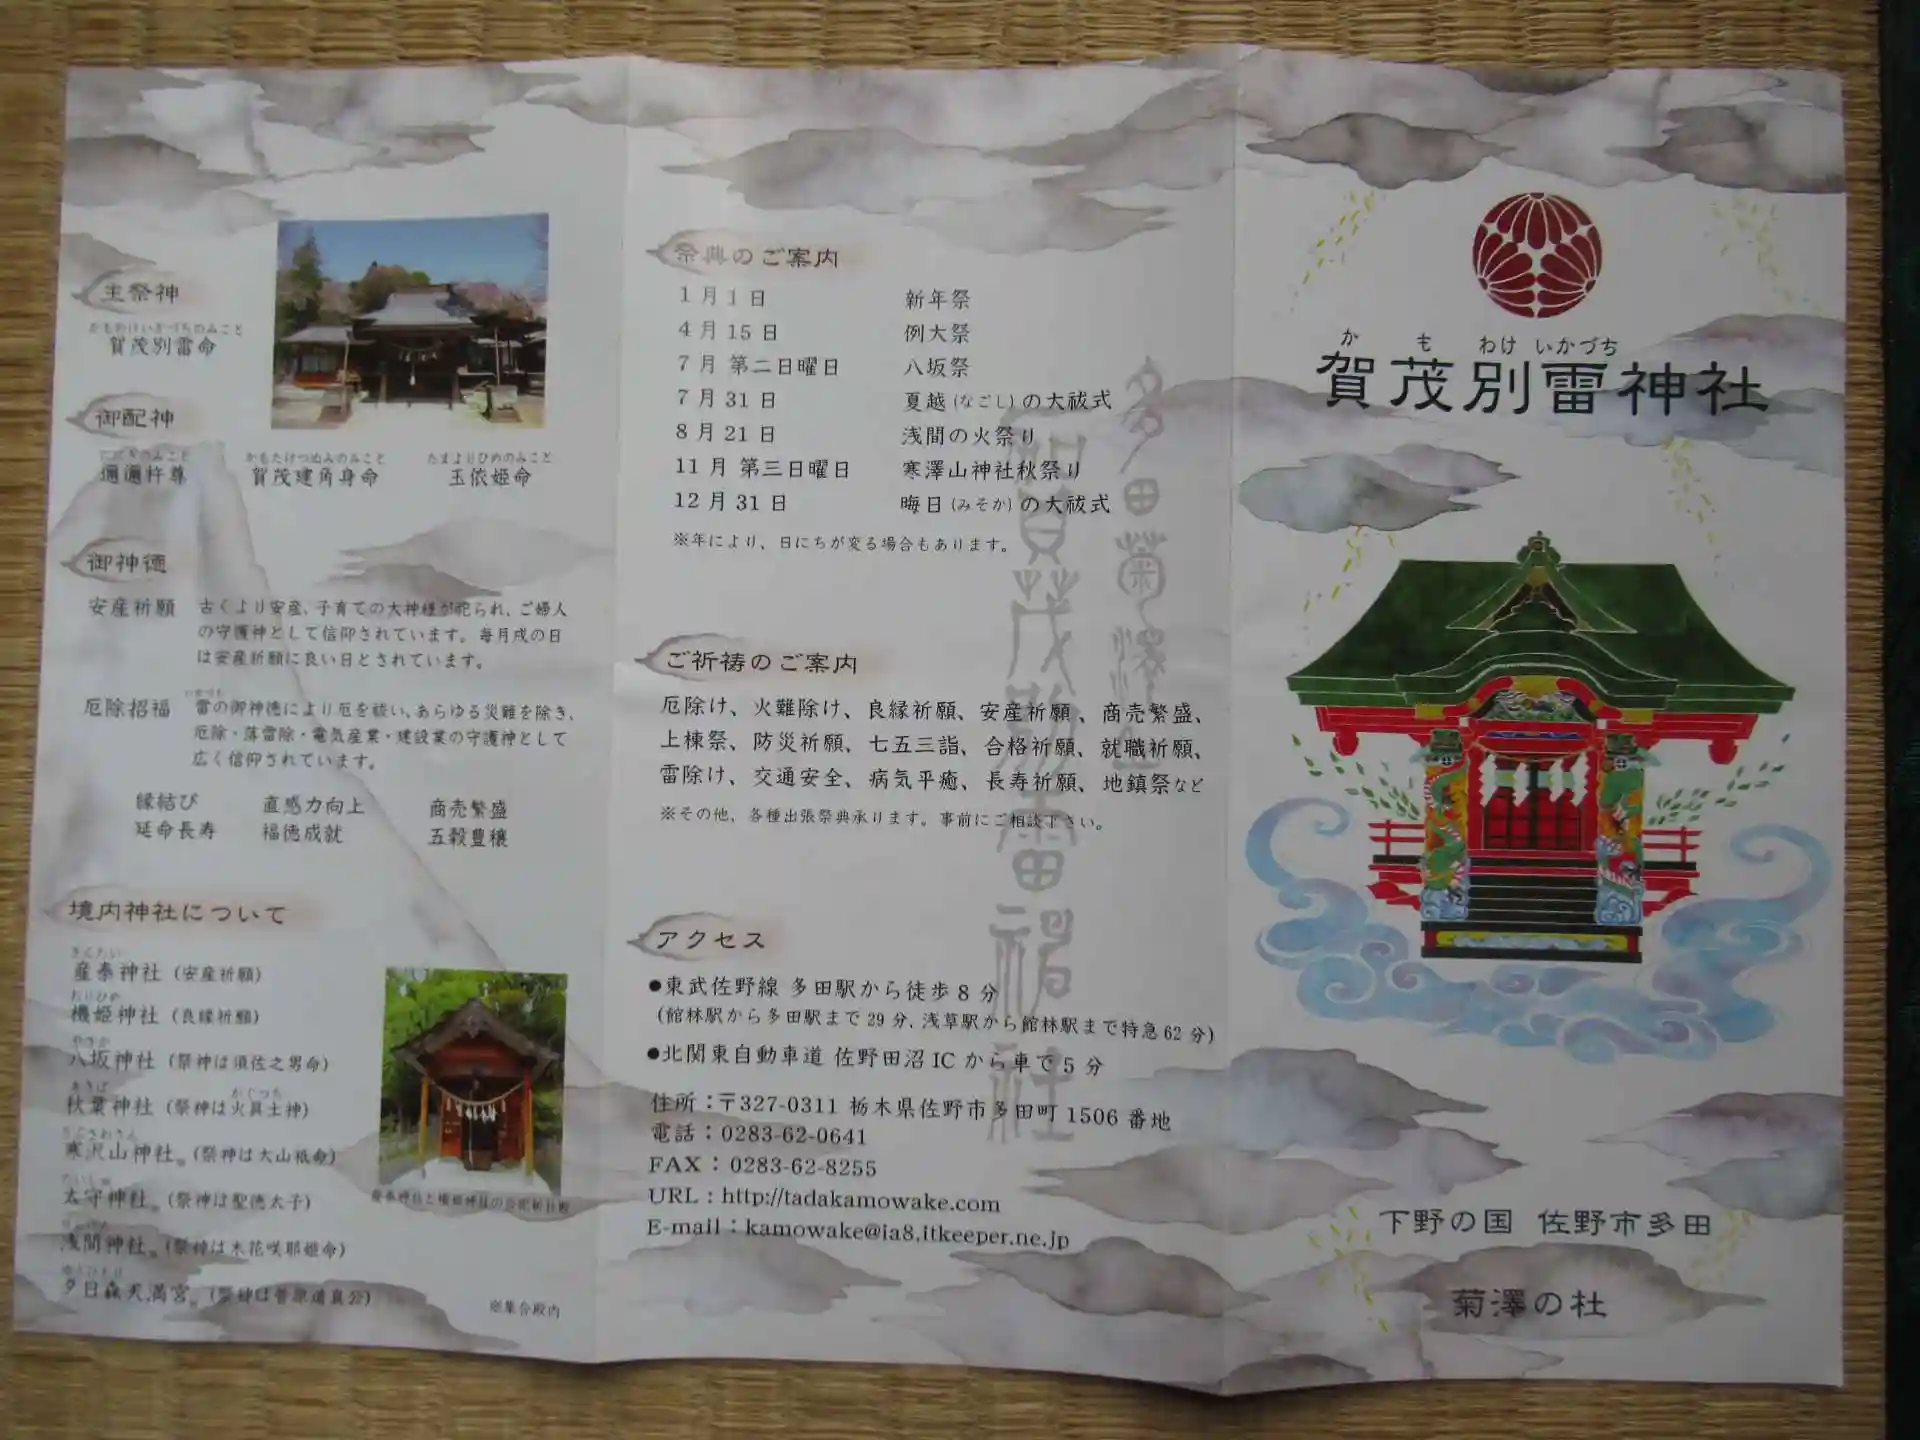 主祭神
かもわけいかづちのみこと
賀茂別雷命
御配神
ににぎのみこと かもたけつぬみのみこと たまよりひめのみこと
邇邇杵尊 賀茂建角身命 玉依姫命
御神徳
安産祈願 古くより安産、子育ての大神様が祀られ、ご婦人
の守護神として信仰されています。毎月戌の日
は安産祈願に良い日とされています。
いかづち
厄除招福 雷の御神徳により厄を祓い、あらゆる災難を除き、
厄除・落雷除・電気産業・建設業の守護神として
広く信仰されています。
縁結び 直感力向上 商売繁盛
延命長寿 福徳成就 五穀豊穣
境内神社について
さんたい
産泰神社 (安産祈願)
おりひめ
機姫神社 (良縁祈願)
やさか
八坂神社 (祭神は須佐之男命)
あきば かぐつち
秋葉神社 (祭神は火具土神)
さぶさわさん
寒沢山神社※ (祭神は大山祇命)
たいしゅ
太守神社※ (祭神は聖徳太子)
浅間神社※ (祭神は木花咲耶姫命)
夕日森天満宮※ (祭神は菅原道真公)
※集合殿内
祭典のご案内
1月1日 新年祭
4月15日 例大祭
7月 第二日曜日 八坂祭
7月31日 夏越(なごし)の大祓式
8月21日 浅間の火祭り
11月 第三日曜日 寒澤山神社秋祭り
12月31日 晦日(みそか)の大祓式
※年により、日にちが変る場合もあります。
ご祈祷のご案内
厄除け、火難除け、良縁祈願、安産祈願、商売繁盛、
上棟祭、防災祈願、七五三詣、合格祈願、就職祈願、
雷除け、交通安全、病気平癒、長寿祈願、地鎮祭など
※その他、各種出張祭典承ります。事前にご相談下さい。
アクセス
●東武佐野線 多田駅から徒歩8分
(館林駅から多田駅まで29分、浅草駅から館林駅まで特急62分)
●北関東自動車道 佐野田沼ICから車で5分
住所:〒327-0311 栃木県佐野市多田町1506番地
電話:0283-62-0641
FAX:0283-62-8255
URL:http://tadakamowake.com
E-mail:kamowake@ia8.itkeeper.ne.jp
か も わけ いかづち
賀茂別雷神社
下野の国 佐野市多田
菊澤の杜